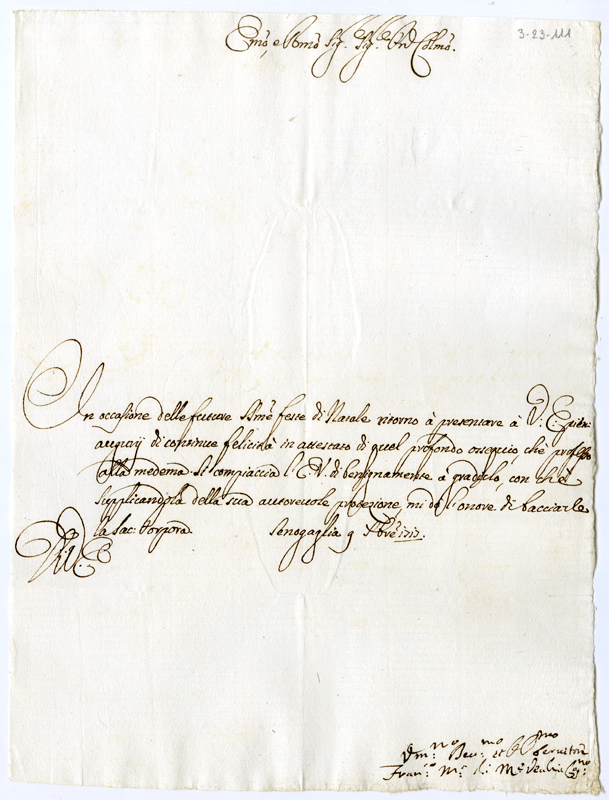 Emõ, e Rmõ Sig. Sig. Prõn Colmõ.
3-23-111
In occasione delle future Smẽ feste di Natale ritorno à presentare à V: E: pieni
augurij di continue felicità in attestato di quel profondo ossequio, che professo
alla medema. Si compiaccia l'E. V. di benignamente à gradirlo, con che
supplicandola della sua autorevole protezione, mi dò l'onore di bacciarle
la Sac: Porpora.
Senogaglia 9 Xbre
D. V. E.
Vm.mo Dev.mo et servitore
Fran.co M.a